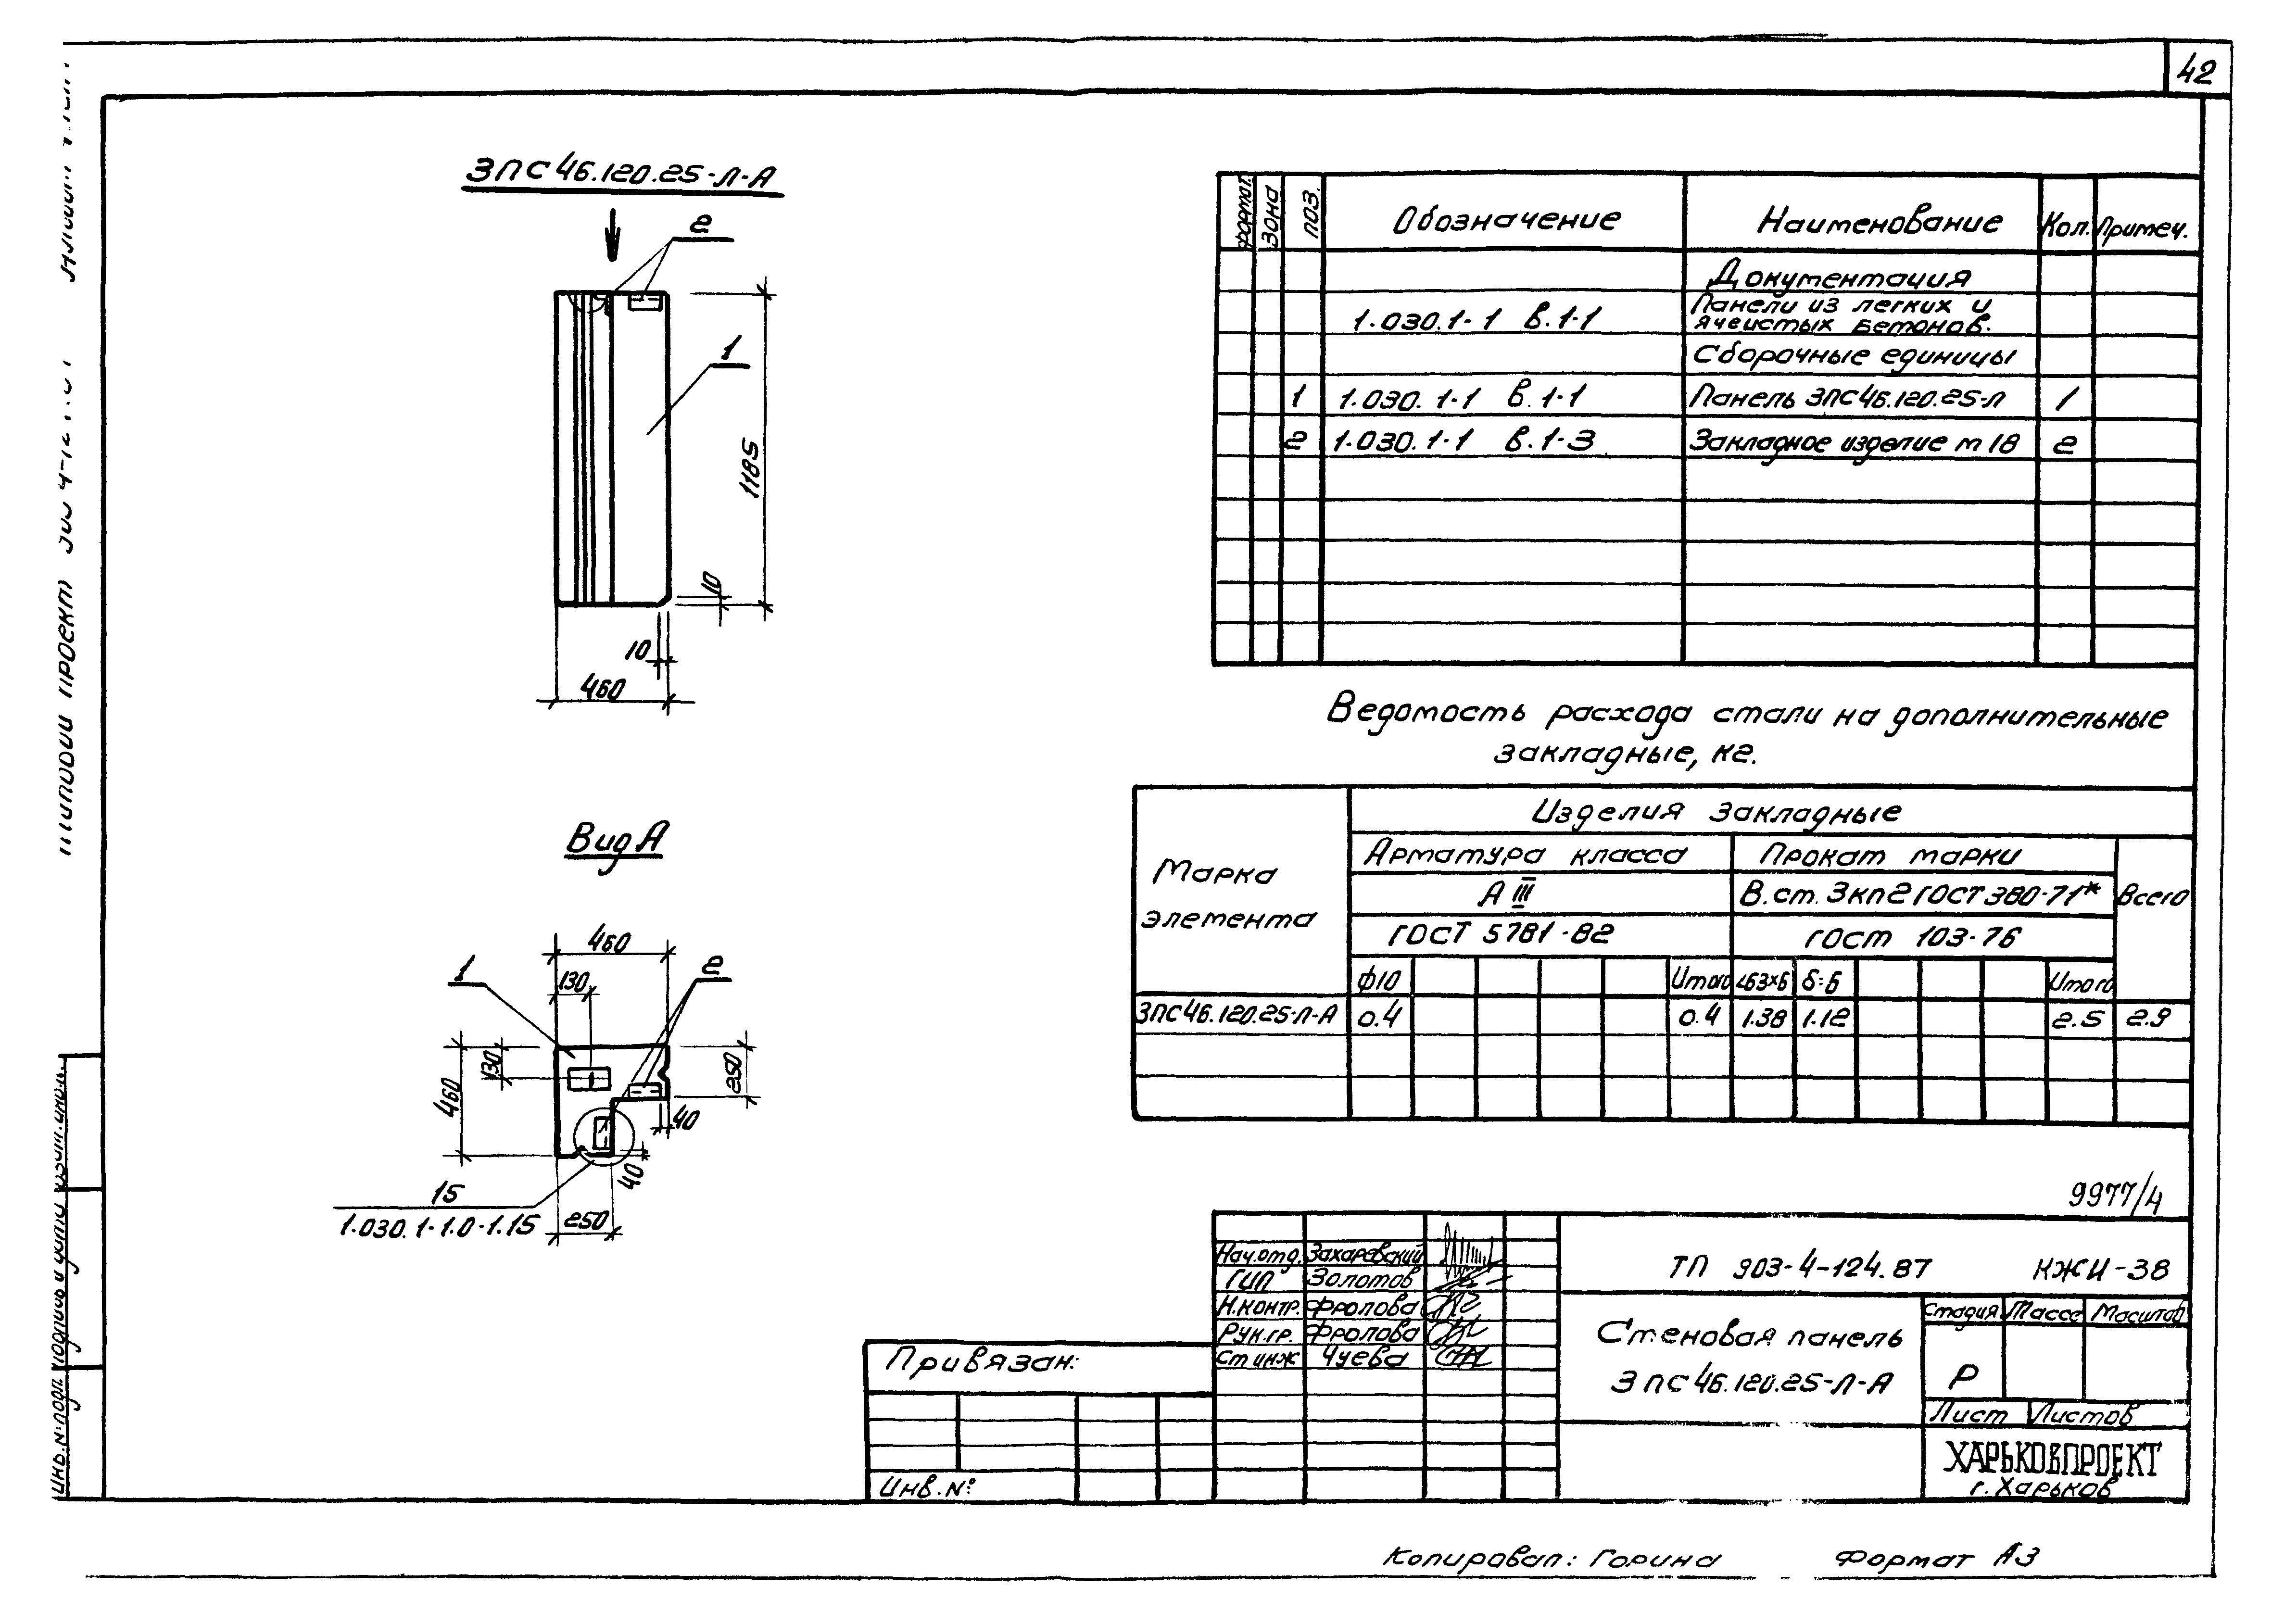 42
3ПС46.120.25-Л-А
2
1
1185
10
10
460
Вид А
460
130
1
2
460
130
250
40
40
15
1.030.1-1.0-1.15
250
Формат.
Зона
Поз.
Обозначение
Наименование
Кол.
Примеч.
Документация
1.030.1-1 в.1-1
Панели из легких и
ячеистых бетонов.
Сборочные единицы
1 1.030.1-1 в.1-1 Панель 3ПС46.120.25-Л 1
2 1.030.1-1 в.1-3 Закладное изделие м 18 2
Ведомость расхода стали на дополнительные
закладные, кг.
Марка
элемента
Изделия закладные
Арматура класса
Прокат марки
Всего
А III
В.ст.3кп2 ГОСТ 380-71*
ГОСТ 5781-82
ГОСТ 103-76
ф10 Итого ∟63×6 δ=6 Итого
3ПС46.120.25-Л-А 0.4 0.4 1.38 1.12 2.5 2.9
9977/4
Нач.отд. Захаревский
ГИП Золотов
Н.контр. Фролова
Рук.гр. Фролова
Ст инж Чуева
ТП 903-4-124.87 КЖИ-38
Стеновая панель
3ПС46.120.25-Л-А
Стадия Масса Масштаб
Р
Лист Листов
ХАРЬКОВПРОЕКТ
г. Харьков
Привязан:
Инв.№
Типовой проект
Инв.№ подл. Подпись и дата Взам.инв.№
Копировал: Горина Формат А3